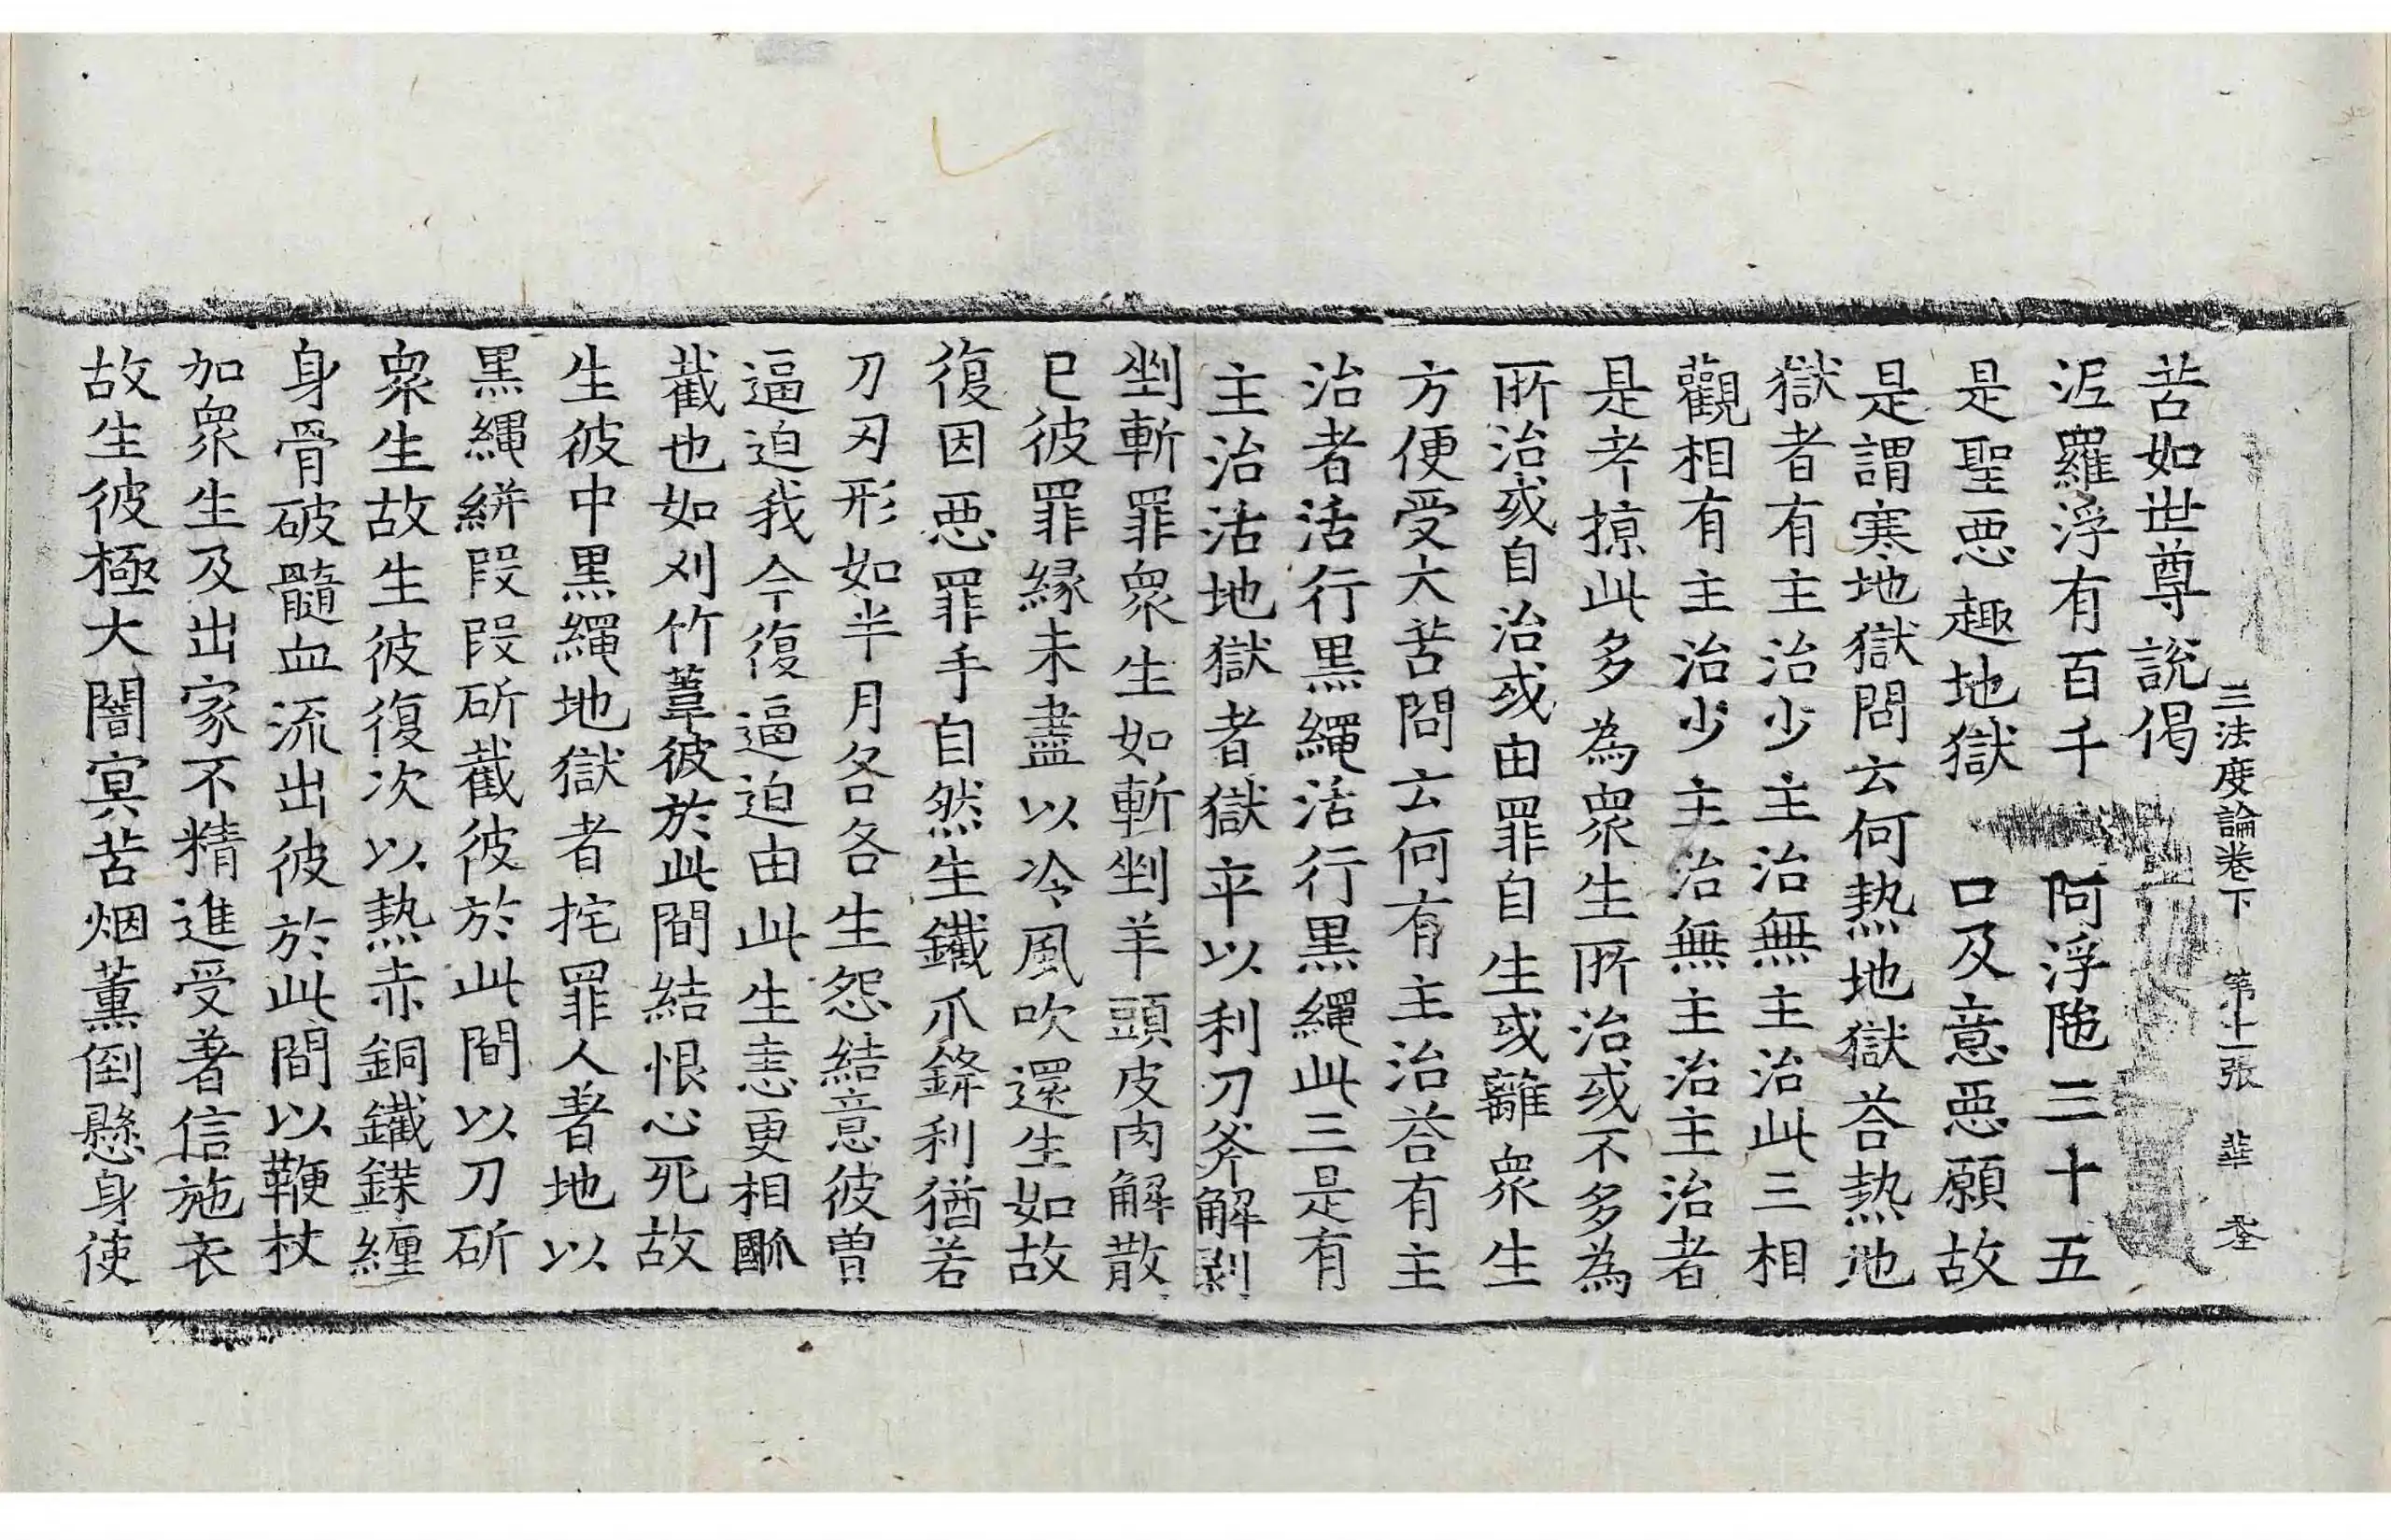 三法度論卷下 第十一張 華
苦如世尊說偈
泥羅浮有百千 阿浮陁三十五
是聖惡趣地獄 口及意惡願故
是謂寒地獄問云何熱地獄荅熱地
獄者有主治少主治無主治此三相
觀相有主治少主治無主治主治者
是考掠此多為衆生所治或不多為
所治或自治或由罪自生或離衆生
方便受大苦問云何有主治荅有主
治者活行黒繩活行黒繩此三是有
主治活地獄者獄卒以利刀斧解剥
剉斬罪衆生如斬剉羊頭皮肉解散
已彼罪緣未盡以冷風吹還生如故
復因惡罪手自然生鐵爪鋒利猶若
刀刃形如半月各各生怨結意彼曽
逼迫我今復逼迫由此生恚更相𠟠
截也如刈竹葦彼於此間結恨心死故
生彼中黒繩地獄者拕罪人著地以
黒繩絣段段斫截彼於此間以刀斫
衆生故生彼復次以熱赤銅鐵鍱纏
身骨破髓血流出彼於此間以鞭杖
加衆生及出家不精進受著信施衣
故生彼極大闇冥苦烟薰倒懸身使